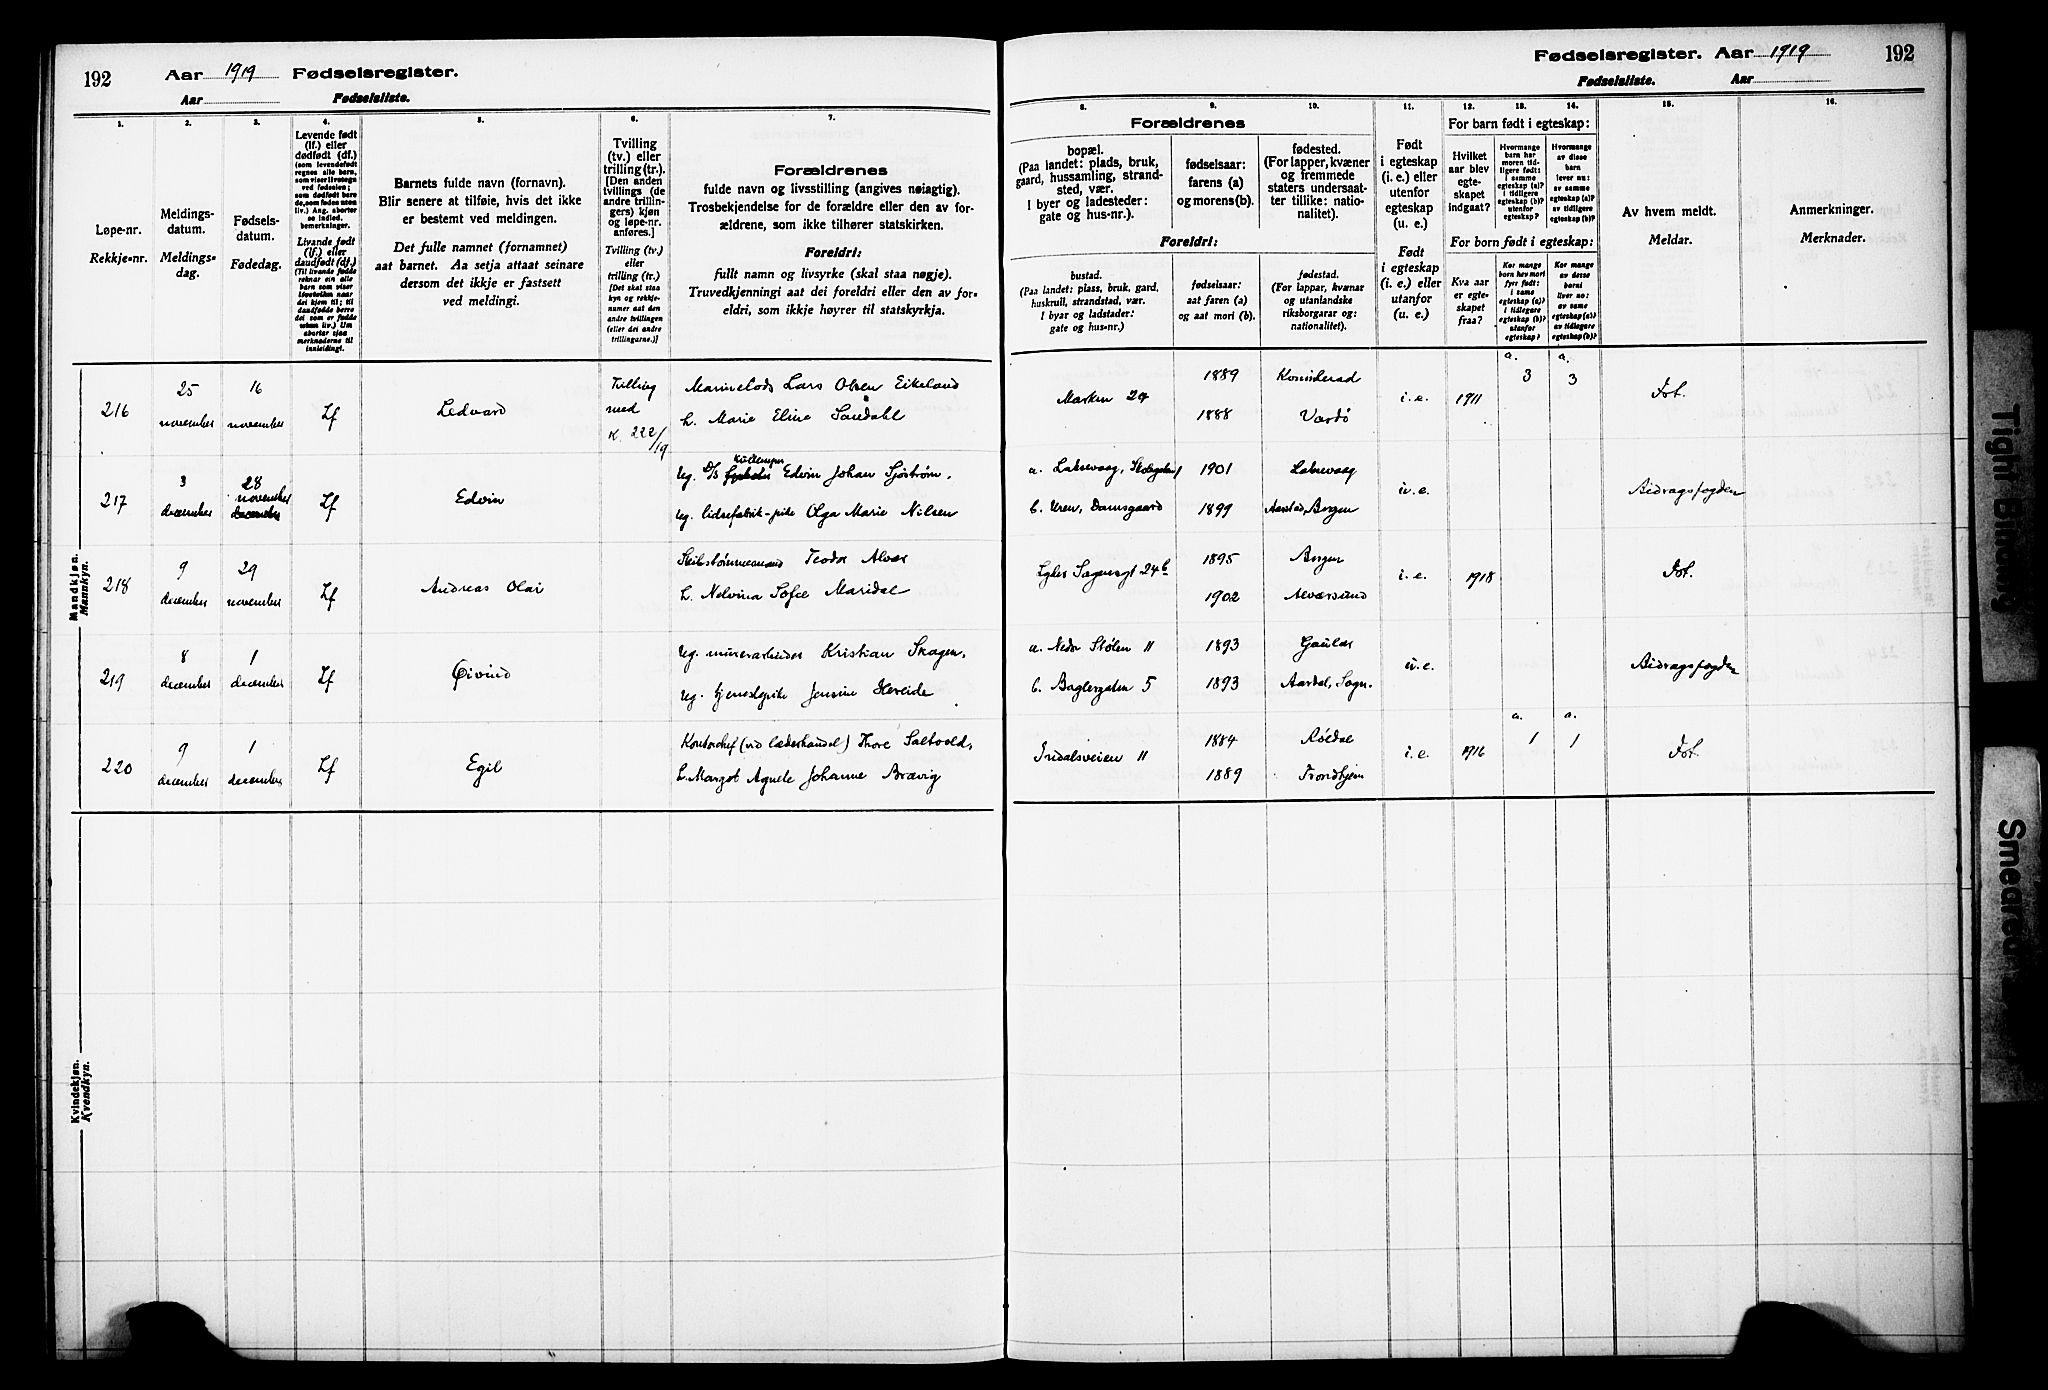 192
Aar 1919 Fødselsregister.
Aar Fødselsliste.
Fødselsregister. Aar 1919 192
Fødselsliste. Aar
1. 2. 3. 4. 5. 6. 7.
8. 9. 10. 11. 12. 13. 14. 15. 16.
Løpe-nr.
Rekkje-nr.
Meldings-
datum.
Meldings-
dag.
Fødsels-
datum.
Fødedag.
Levende født
(lf.) eller
dødfødt (df.)
(som levendefødt
regnes alle barn,
som viser livstegn
ved fødselen;
som dødfødt bare
de, som fødes uten
liv.) Ang. aborter
se indled.
bemerkninger.
Livande født
(lf.) eller
daudfødt (df.)
Barnets fulde navn (fornavn).
Blir senere at tilføie, hvis det ikke
er bestemt ved meldingen.
Det fulle namnet (fornamnet)
aat barnet. Aa setja attaat seinare
dersom det ikkje er fastsett
ved meldingi.
Tvilling
(tv.) eller
trilling (tr.)
[Den anden
tvillings (de
andre trillin-
gers) kjøn
og løpe-nr.
anføres.]
Tvilling (tv.)
eller
trilling (tr.)
[Det skal staa
kyn og rekkje-
numer aat den
andre tvillingen
(eller dei andre
trillingarne.)]
Forældrenes
fulde navn og livsstilling (angives nøiagtig).
Trosbekjendelse for de forældre eller den av for-
ældrene, som ikke tilhører statskirken.
Foreldri:
fullt namn og livsyrke (skal staa nøgje).
Truvedkjenningi aat dei foreldri eller den av for-
eldri, som ikkje høyrer til statskyrkja.
Forældrenes
bopæl.
(Paa landet: plads, bruk,
gaard, hussamling, strand-
sted, vær.
I byer og ladesteder:
gate og hus-nr.).
fødselsaar:
farens (a)
og morens (b).
fødested.
(For lapper, kvæner
og fremmede
staters undersaat-
ter tillike: natio-
nalitet).
Foreldri:
bustad.
(Paa landet: plass, bruk, gard,
huskrull, strandstad, vær.
I byar og ladstader:
gate og hus-nr.)
fødselsaar:
aat faren (a)
og aat mori (b).
fødestad.
(For lappar, kvænar
og utanlandske
riksborgarar og:
nationalitet).
Født
i egteskap
(i. e.) eller
utenfor
egteskap
(u. e.)
Født
i egteskap
(i. e.) eller
utanfor
(u. e.)
For barn født i egteskap:
Hvilket
aar blev
egte-
skapet
indgaat?
Hvormange
barn har
moren tid-
ligere født:
i samme
egteskap (a)?
i tidligere
egteskap (b)?
utenfor
egteskap?
Hvormange
av disse
barn
lever nu:
av samme
egteskap (a)?
av tidligere
egteskap (b)?
For born født i egteskap:
Kva aar
er egte-
skapet
fraa?
Kor mange
born hev mori
fyrr født:
i same
egteskap (a)?
i tidlegare
egteskap (b)?
utanfor
egteskap?
Kor mange
av desse
borni
liver no:
av same
egteskap (a)?
av tidlegare
egteskap (b)?
Av hvem meldt.
Meldar.
Anmerkninger.
Merknader.
Mandkjøn.
Mannkyn.
216 25 november 16 november Lf Ledvard Tvilling med K. 222/19 Lars Olsen Eikeland
h. Marie Eline
Marken 24 1889 1888 Vardö i.e. 1911 a. 3 a. 3 Fot.
217 3 december 28 november december Lf Edvin Ug. D/S Edvin Johan Sjöström.
Ug. Olga Marie Nilsen
a. Laksevaag, 1901 Laksevaag
b. Uren, Damsgaard 1899 Aarstad, Bergen u.e. Bidragsfogden
218 9 december 29 november Lf Andreas Olai Teodor Alver
h. Nelvina Sofie Maridal
24b 1895 Bergen 1902 Alværsund i.e. 1918 Fot.
219 8 december 1 december Lf Øivind Ug. murerarbeider Kristian Skagen.
Ug. tjenestepike Jensine Hereide
a. Nedr Stølen 11 1893 Gaular
b. Baglergaten 5 1893 Aardal, Sogn. u.e. Bidragsfogden
220 9 december 1 december Lf Egil Kontorchef (ved læderhandel) Thore Saltvold,
h. Margot Agnete Johanne Brævig
Inndalsveien 11 1884 1889 Trondhjem i.e. 1916 a. 1 a. 1 Fot.
Kvindekjøn.
Kvendkyn.
Tight Binding
Smeared